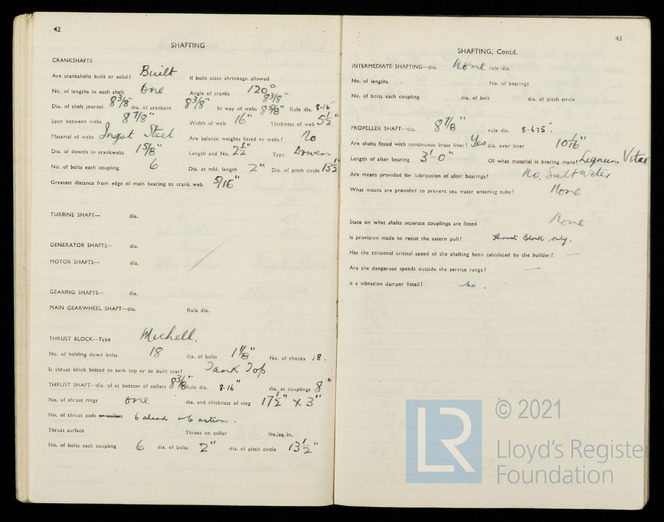 42
SHAFTING
CRANKSHAFTS
Are crankshafts built or solid? Built If built state shrinkage allowed
No. of lengths in each shaft One Angle of cranks 120°
Dia. of shaft journal 8 3/8" dia. of crankpin 8 3/8" In way of webs 8 5/8" Rule dia. 8.16"
8 3/8"
Span between webs 8 7/8" Width of web 16" Thickness of web 5 1/2"
Material of webs Ingot Steel Are balance weights fitted to webs? No
Dia. of dowels in crankwebs 1 5/8" Length and No. 2 1/2" Type
No. of bolts each coupling 6 Dia. at mid. length 2" Dia. of pitch circle 13 1/2"
Greatest distance from edge of main bearing to crank web 5/16"
TURBINE SHAFT— dia.
GENERATOR SHAFTS— dia.
MOTOR SHAFTS— dia.
GEARING SHAFTS— dia.
MAIN GEARWHEEL SHAFT—dia. Rule dia.
THRUST BLOCK—Type Michell.
No. of holding down bolts 18 dia. of bolts 1 1/8" No. of chocks 18.
Is thrust block bolted to tank top or to built seat? Tank Top
THRUST SHAFT—dia. of at bottom of collars 8 3/8" Rule dia. 8.16" dia. at couplings 8"
No. of thrust rings One dia. and thickness of ring 17 1/2" x 3"
No. of thrust pads or collar 6 ahead 6 astern.
Thrust surface Thrust on collar lbs./sq. in.
No. of bolts each coupling 6 dia. of bolts 2" dia. of pitch circle 13 1/2"
43
SHAFTING, Contd.
INTERMEDIATE SHAFTING—dia. None rule dia.
No. of lengths No. of bearings
No. of bolts each coupling dia. of bolt dia. of pitch circle
PROPELLER SHAFT—dia. 8 7/8" rule dia. 8.675.
Are shafts fitted with continuous brass liner? Yes dia. over liner 10 1/16"
Length of after bearing 3'-0" Of what material is bearing made? Lignum Vitae
Are means provided for lubrication of after bearing? No, Salt Water
What means are provided to prevent sea water entering tube? None
State on what shafts separate couplings are fitted None
Is provision made to resist the astern pull? Thrust Block only.
Has the torsional critical speed of the shafting been calculated by the builder? —
Are the dangerous speeds outside the service range? —
Is a vibration damper fitted? No.
LR © 2021
Lloyd's Register
Foundation